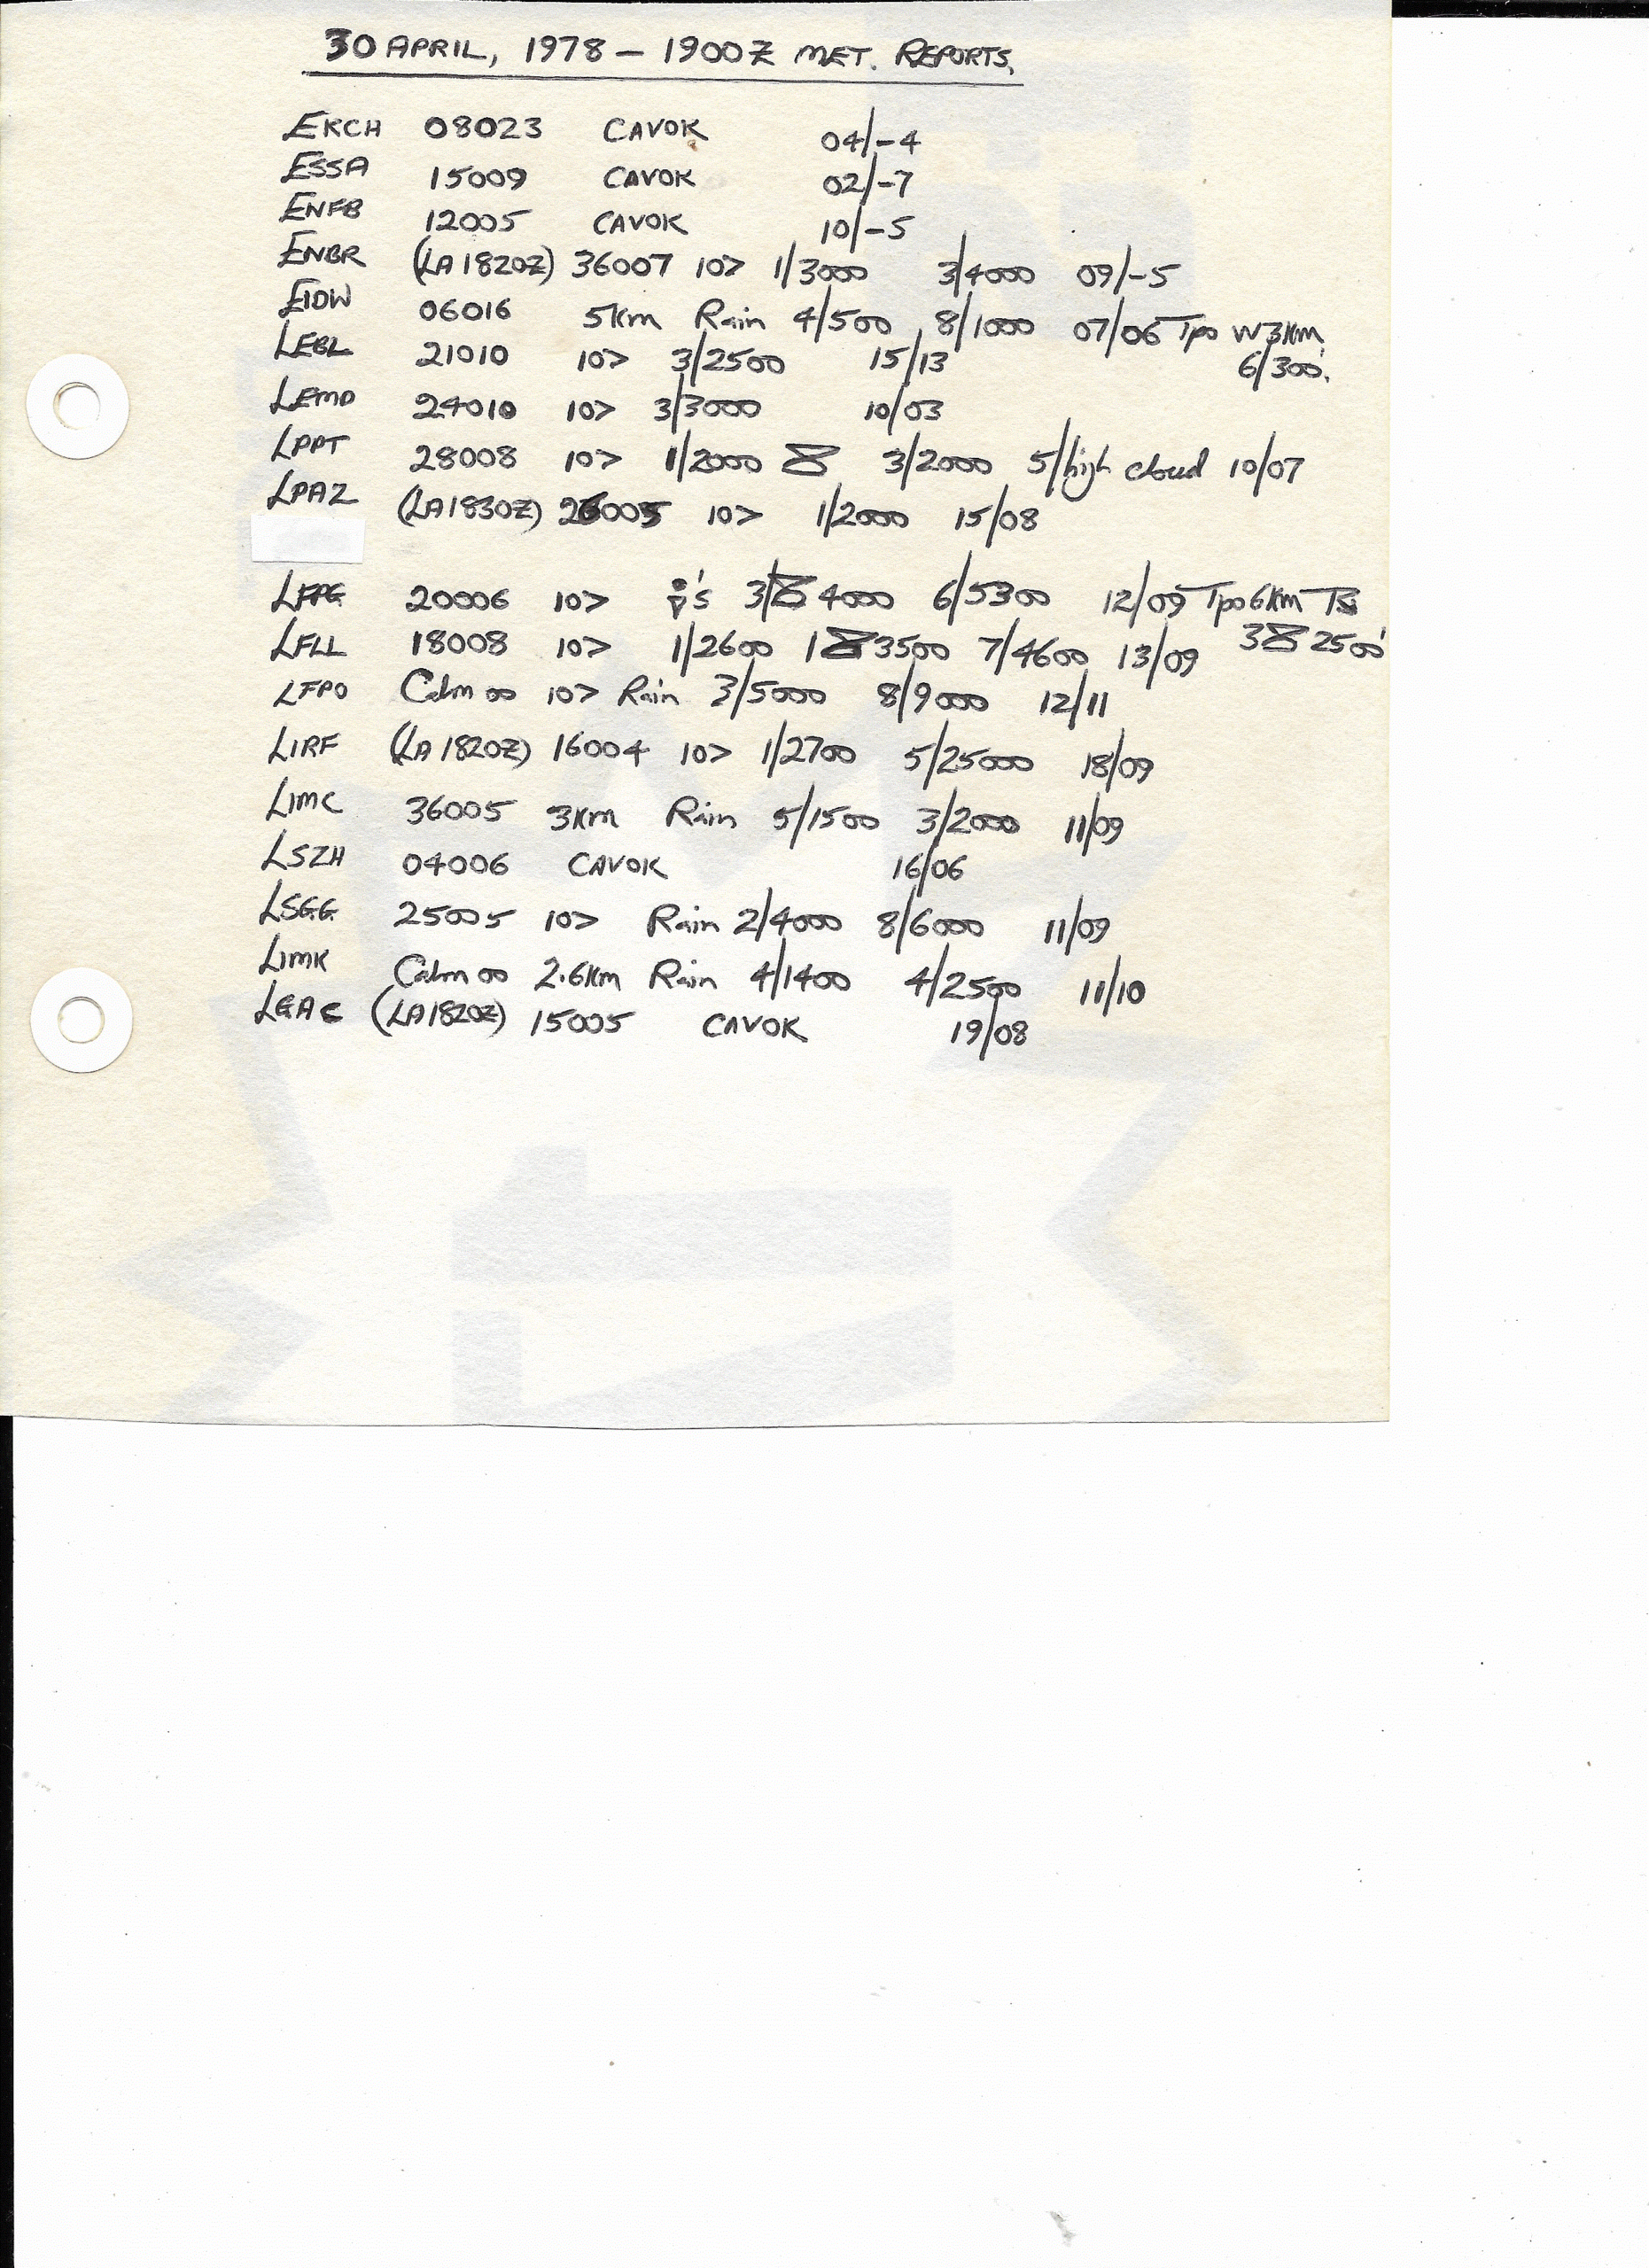 30 APRIL, 1978 – 1900Z MET. REPORTS.
EKCH 08023 CAVOK 04/-4
ESSA 15009 CAVOK 02/-7
ENFB 12005 CAVOK 10/-5
ENBR (LA 1820Z) 36007 10> 1/3000 3/4000 09/-5
EIDW 06016 5km Rain 4/500 8/1000 07/06 Tpo W 3km
6/300.
LEBL 21010 10> 3/2500 15/13
LEMD 24010 10> 3/3000 10/03
LPPT 28008 10> 1/2000 3/2000 5/high cloud 10/07
LPAZ (LA1830Z) 26005 10> 1/2000 15/08
LFPG 20006 10> 's 3/ 4000 6/5300 12/09 Tpo 6km TS
3 2500'
LFLL 18008 10> 1/2600 1 3500 7/4600 13/09
LFPO Calm 00 10> Rain 3/5000 8/9000 12/11
LIRF (LA 1820Z) 16004 10> 1/2700 5/25000 18/09
LIMC 36005 3km Rain 5/1500 3/2000 11/09
LSZH 04006 CAVOK 16/06
LSGG 25005 10> Rain 2/4000 8/6000 11/09
LIMK Calm 00 2.6km Rain 4/1400 4/2500 11/10
LGAC (LA1820Z) 15005 CAVOK 19/08